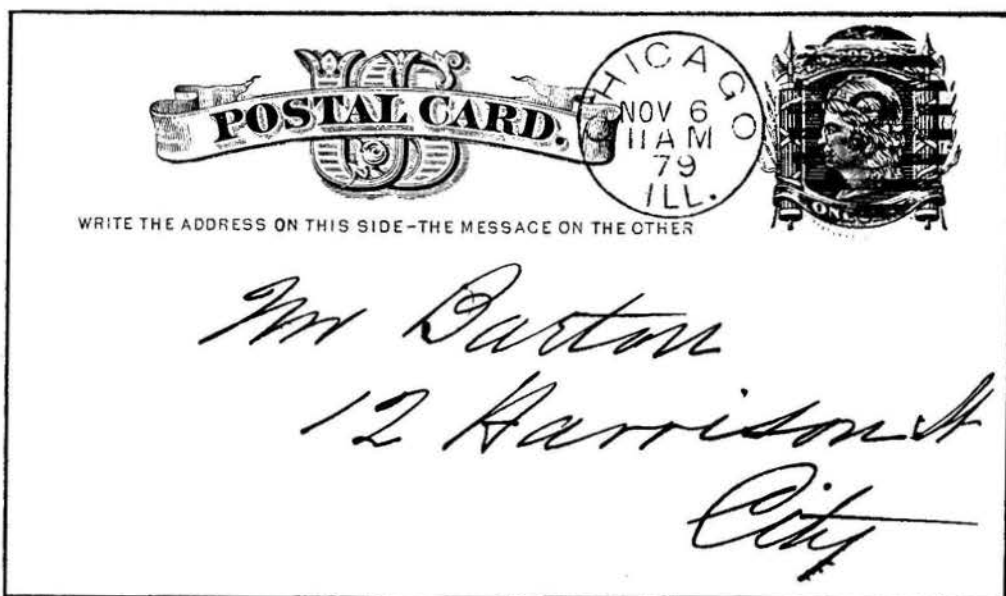 US
POSTAL CARD.
CHICAGO
NOV 6
11 AM
79
ILL.
WRITE THE ADDRESS ON THIS SIDE-THE MESSAGE ON THE OTHER
ONE
Barton
12 Harrison St
City